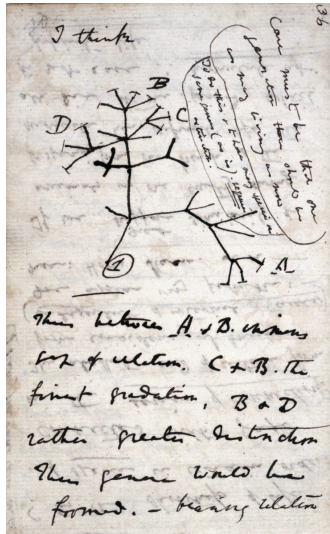 36
I think
Case must be that one
generation then should be
as many living as now
To do this & to have many species in
same genus (as is) requires
extinction
B
D
C
A
1
Thus between A & B. immens
gap of relation. C & B. the
finest gradation, B & D
rather greater distinction
Thus genera would be
formed. – bearing relation